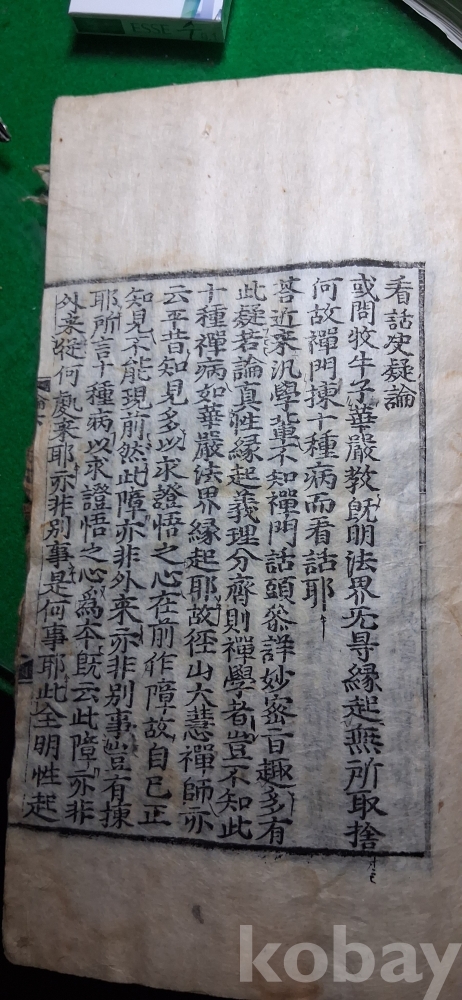 看話决疑論
或問牧牛子華嚴教旣明法界无㝵緣起無所取捨
何故禪門揀十種病而看話耶
荅近來汎學輩不知禪門話頭叅詳妙密旨趣多有
此疑若論真性緣起義理分齊則禪學者豈不知此
十種禪病如華嚴法界緣起耶故徑山大慧禪師亦
云平昔知見多以求證悟之心在前作障故自己正
知見不能現前然此障亦非外來亦非別事豈有揀
耶所言十種病以求證悟之心爲本旣云此障亦非
外来從何處來耶亦非別事是何事耶此全明性起
ESSE
kobay